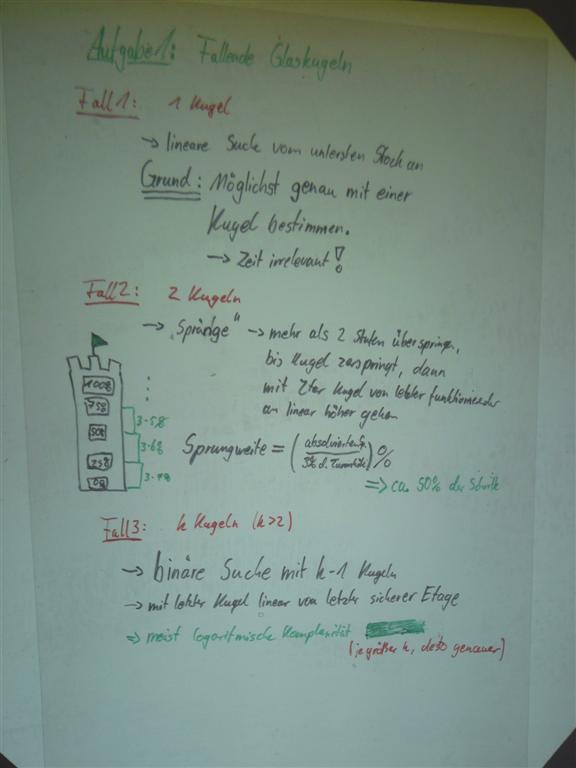 Aufgabe 1: Fallende Glaskugeln
Fall 1: 1 Kugel
→ lineare Suche vom untersten Stock an
Grund: Möglichst genau mit einer
Kugel bestimmen.
→ Zeit irrelevant!
Fall 2: 2 Kugeln
→ „Sprünge" → mehr als 2 Stufen überspringen,
bis Kugel zerspringt, dann
mit 2ter Kugel von letzter funktionierender
an linear höher gehen
100%
75%
50%
25%
0%
3.5%
3.6%
Sprungweite = ( / 3% d. Turmhöhe ) %
⇒ ca. 50% der Schritte
Fall 3: k Kugeln (k>2)
→ binäre Suche mit k-1 Kugeln
→ mit letzter Kugel linear von letzter sicherer Etage
⇒ meist logaritmische Komplexität
(je größer k, desto genauer)